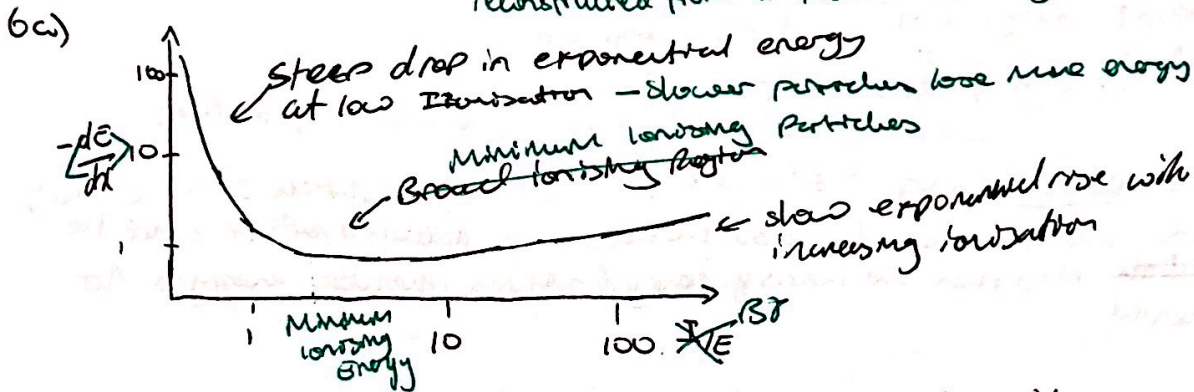 reconstructed from
6a)
100
Steep drop in exponential energy
at low Ionisation - slower particles lose more energy
-<dE/dx>
10
Minimum ionising Particles
Broad ionising Region
slow exponential rise with
increasing ionisation
1
1
10
100
βγ
I/E
Minimum
ionising
Energy